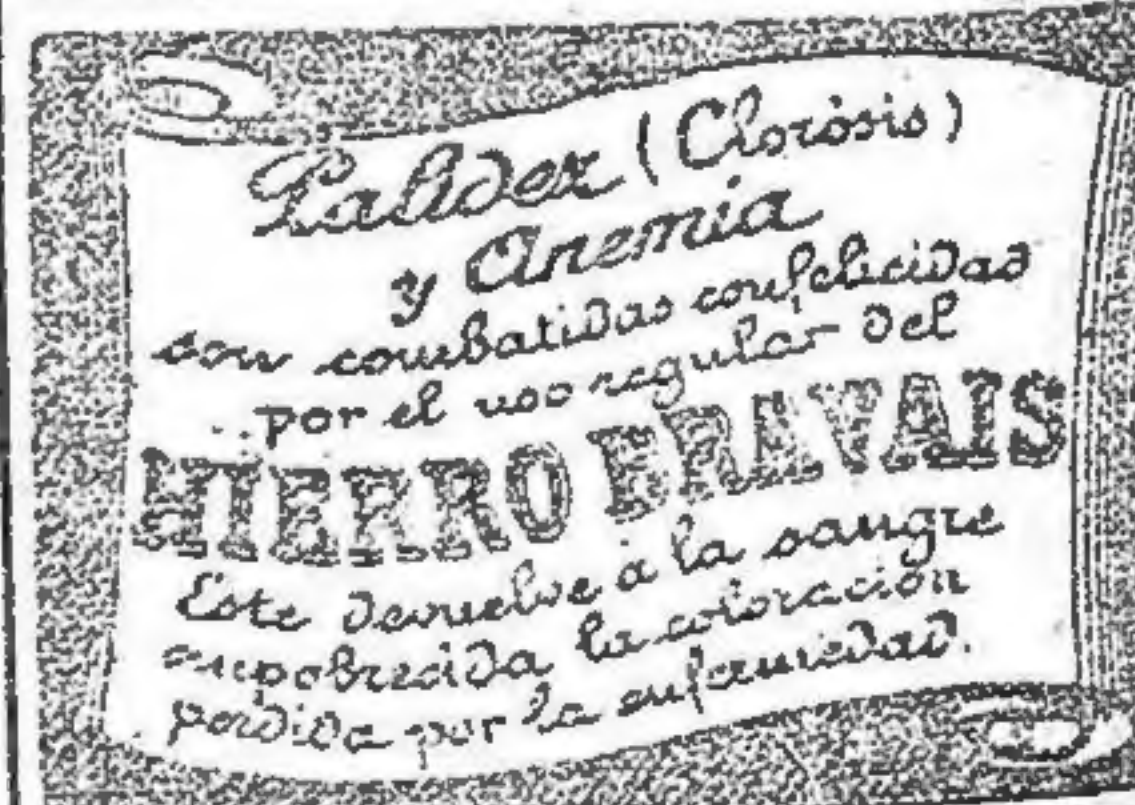 Palidez (Clorósis)
y Anemia
son combatidas con felicidad
por el uso regular del
HIERRO BRAVAIS
Este devuelve à la sangre
empobrecida la coloracion
perdida por la enfermedad.